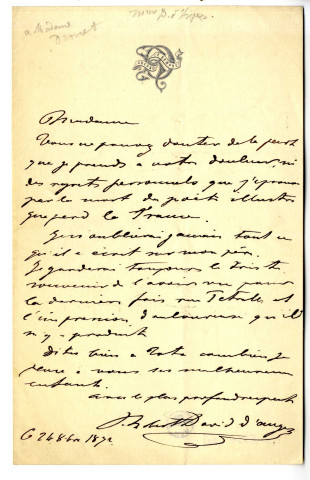 a Madame
Drouet
Mme D. d'Angers
Madame
Vous ne pouvez douter de la part
que je prends à votre douleur, ni
des regrets personnels que j'éprouve
par la mort du poëte illustre
que perd la France.
Je n'oublierai jamais tout ce
qu'il a écrit sur mon père.
Je garderai toujours le triste
souvenir de l'avoir vu pour
la dernière fois et
l'impression douloureuse qu'il
m'y a produit
Dites bien à
vous ses malheureux
enfants.
avec le plus profond respect
Robert David d'Angers
Ce 24 8bre 1872